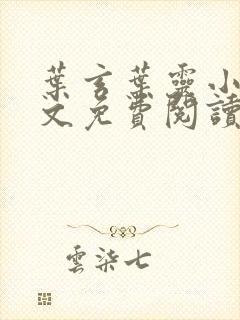 葉言葉靈小
文免費閱讀
雲柒七